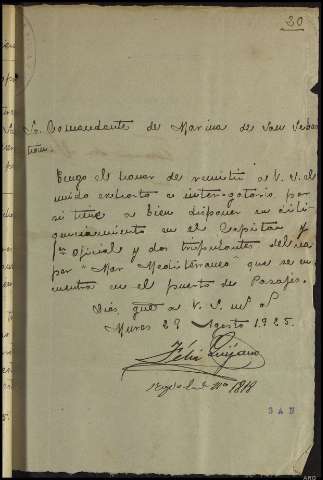 20
Sr. Comandante de Marina de San Sebas
tian.
Tengo el honor de remitir a V. S. el
unido exhorto e interogatorio por
si tiene a bien disponer su dili-
genciamiento en el Capitan y
1er Oficial y dos tripulantes del va
por "Mar Mediterraneo" que se en
cuentra en el puerto de Pasajes.
Dios gue a V. S. ms as
Muros 29 Agosto 1925.
Félix Quijano
Nº 1818
SAN